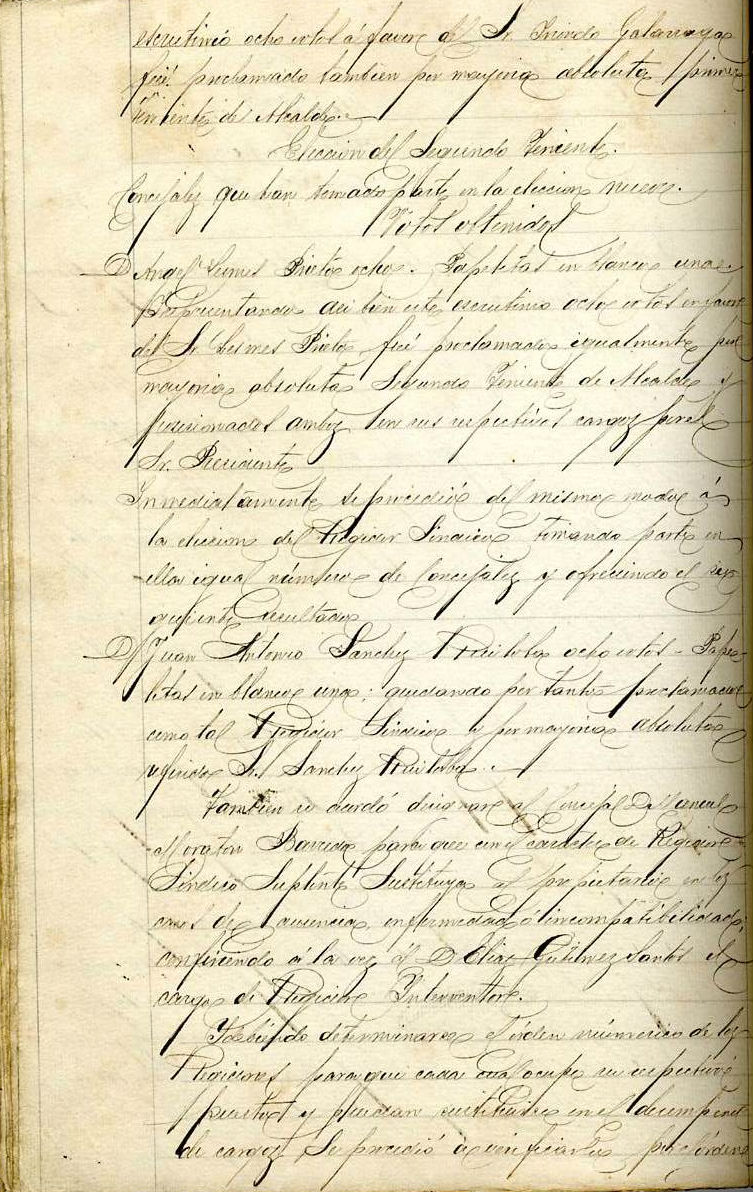 escrutinio ocho votos á favor del Sr. Galarraga
fué proclamado tambien por mayoria absoluta primer
teniente de Alcalde.
Eleccion del Segundo Teniente.
Concejales que han tomado parte en la eleccion nueve.
Votos obtenidos
D. Angel Lesmes Prieto ocho. Papeletas en blanco una.
Representando asi bien este escrutinio ocho votos en favor
del Sr. Lesmes Prieto fué proclamado igualmente por
mayoria absoluta Segundo Teniente de Alcalde y
posesionados ambos en sus respectivos cargos por el
Sr. Presidente
Inmediatamente se procedió del mismo modo á
la eleccion del Regidor Sindico tomando parte en
ella igual número de Concejales y ofreciendo el si-
guiente resultado
D. Juan Antonio Sanchez ocho votos - Pape-
letas en blanco una; quedando por tanto proclamado
como tal Regidor Sindico y por mayoria absoluta
referido Sr. Sanchez
Tambien se acordó designar al Concejal D. Manuel
Moraton para que con el caracter de Regidor
Sindico Suplente Sustituya al propietario en los
casos de ausencia, enfermedad ó incompatibilidad,
confiriendo á la vez á D. Elias Gutierrez Santos el
cargo de Regidor Interventor.
Y debiendo determinarse el órden númerico de los
Regidores para que cada cual ocupe su respectivo
puesto y puedan sustituirse en el desempeño
de cargos Se procedió á verificarlo por el órden